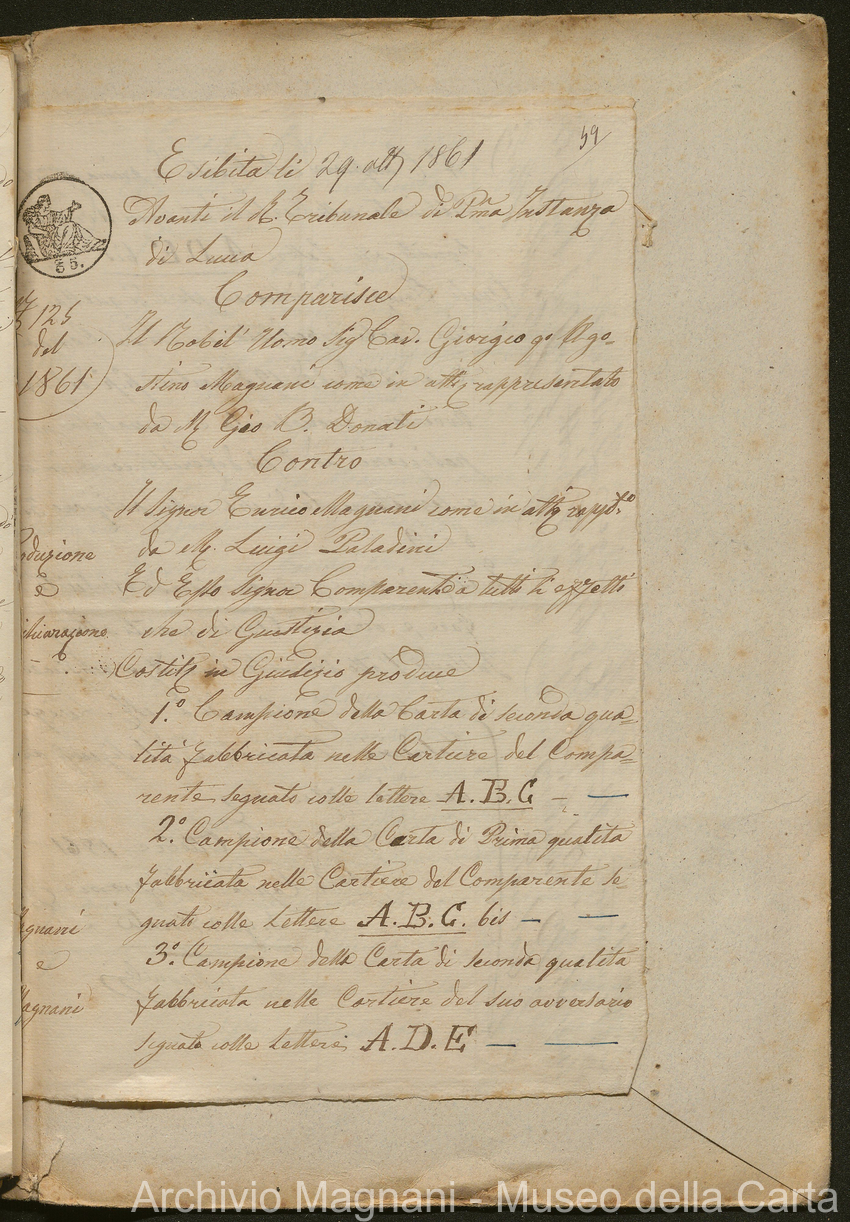 59
Esibita li 29. ott. 1861
Avanti il R. Tribunale di Pma Instanza
di Lucca
Comparisce
Il Nobil' Uomo Sig Cav. Giorgio qo Ago=
stino Magnani come in atti rappresentato
da Mr Gio B. Donati
Contro
Il Signor Enrico Magnani come in atti rappto
da Mr. Luigi Paladini
Ed Esso Signor Comparente a tutti li effetti
che di Giustizia
Costite in Giudizio produce
1.o Campione della Carta di seconda qua=
lità fabbricata nelle Cartiere del Compa=
rente segnato colle lettere A.B.C — —
2.o Campione della Carta di Prima qualità
fabbricata nelle Cartiere del Comparente se=
gnato colle Lettere A.B.C. bis — —
3.o Campione della Carta di seconda qualità
fabbricata nelle Cartiere del suo avversario
segnato colle Lettere A.D.E — —
65.
125
del
1861
oduzione
e
chiarazione
agnani
e
Magnani
Archivio Magnani - Museo della Carta